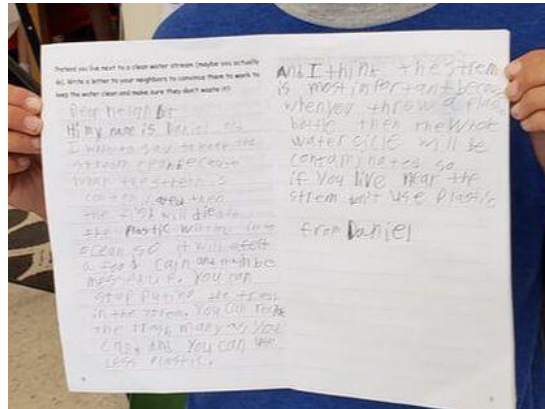 Pretend you live next to a clean water stream (maybe you actually
do). Write a letter to your neighbors to convince them to work to
keep the water clean and make sure they don't waste it!
Dear neighbr
Hi my name is Daniel
I want to say to keep the
stream
the
the fish will die
the Plastic will
ocean so it will afect
a food cain and mabe
messed up. You can
stop puting the trash
in the strem. You can
the trash many as you
can. You can use
Less Plastic.
And I think the strem
is most importan
when you throw a plasc
bottle then the
water cicle will be
contaminated so
if You live near the
strem use Plastic
from Daniel